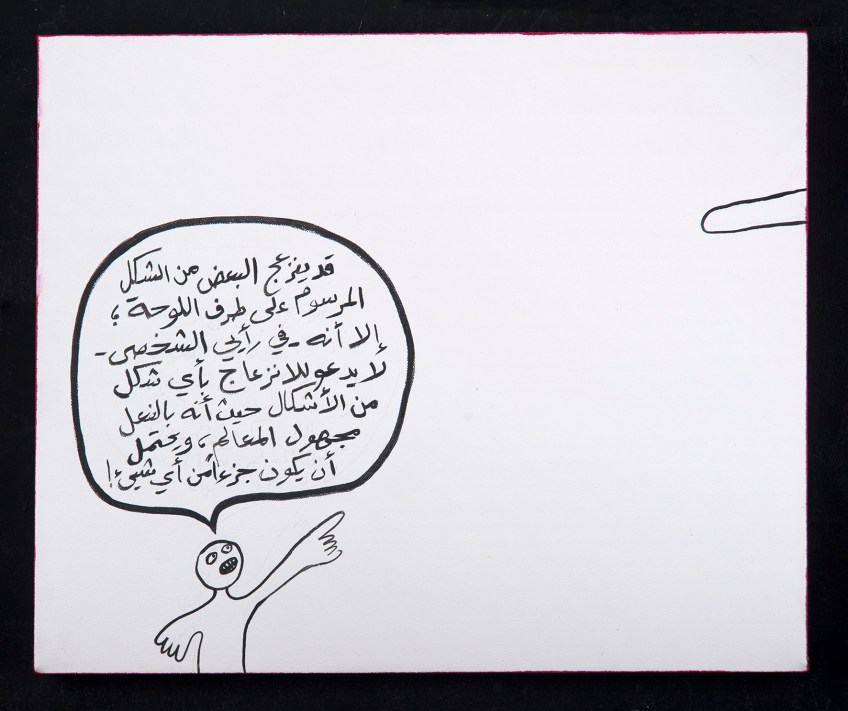 قد ينزعج البعض من الشكل
المرسوم على طرف اللوحة ؛
إلا أنه - في رأيي الشخصي -
لا يدعو للانزعاج بأي شكل
من الأشكال حيث أنه بالفعل
مجهول المعالم ، ويحتمل
أن يكون جزءاً من أي شيئ !